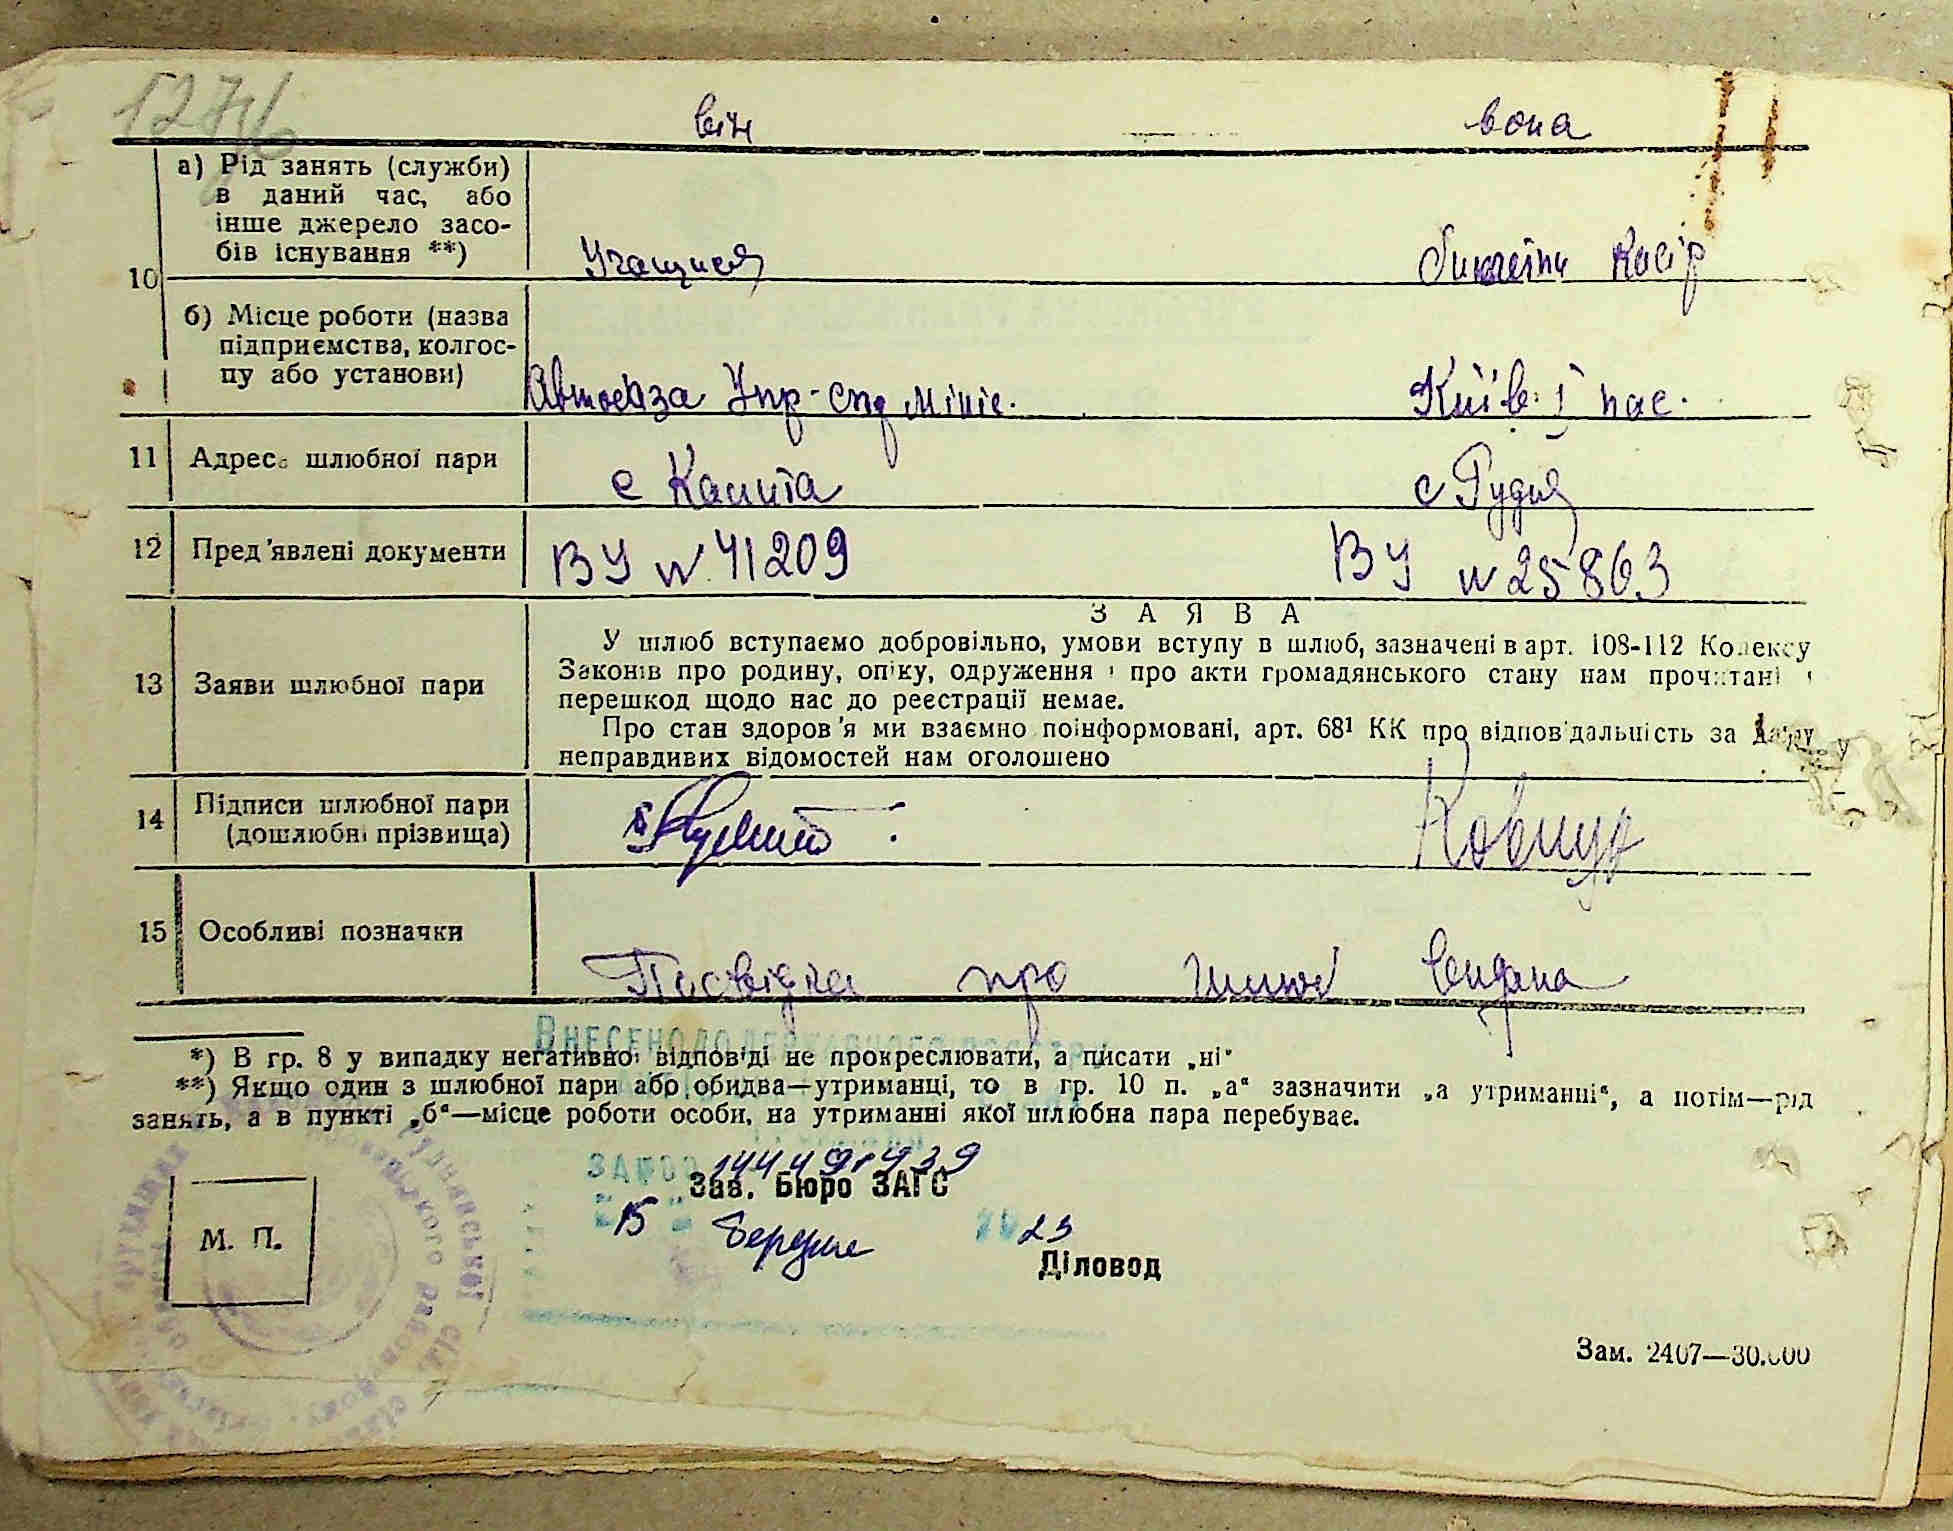 1276
він вона
а) Рід занять (служби)
в даний час, або
інше джерело засо-
бів існування **)
Учащися Касір
10
б) Місце роботи (назва
підприємства, колгос-
пу або установи)
Автобаза Упр-
Київ. І пас.
11 Адреса шлюбної пари
с с Рудня
12 Пред'явлені документи ВУ № 41209 ВУ № 25863
ЗАЯВА
13 Заяви шлюбної пари
У шлюб вступаємо добровільно, умови вступу в шлюб, зазначені в арт. 108-112 Кодексу
Законів про родину, опіку, одруження і про акти громадянського стану нам прочитані і
перешкод щодо нас до реєстрації немає.
Про стан здоров'я ми взаємно поінформовані, арт. 68¹ КК про відповідальність за дачу
неправдивих відомостей нам оголошено
14 Підписи шлюбної пари
(дошлюбні прізвища)
Ковшун
15 Особливі позначки
Посвідка про шлюб видана
Внесено до державного реєстру
*) В гр. 8 у випадку негативної відповіді не прокреслювати, а писати „ні"
**) Якщо один з шлюбної пари або обидва—утриманці, то в гр. 10 п. „а" зазначити „а утриманні", а потім—рід
занять, а в пункті „б"—місце роботи особи, на утриманні якої шлюбна пара перебуває.
Зав. Бюро ЗАГС
М. П.
15 березня 2023
Діловод
Рудницької
районного
Зам. 2407—30.000